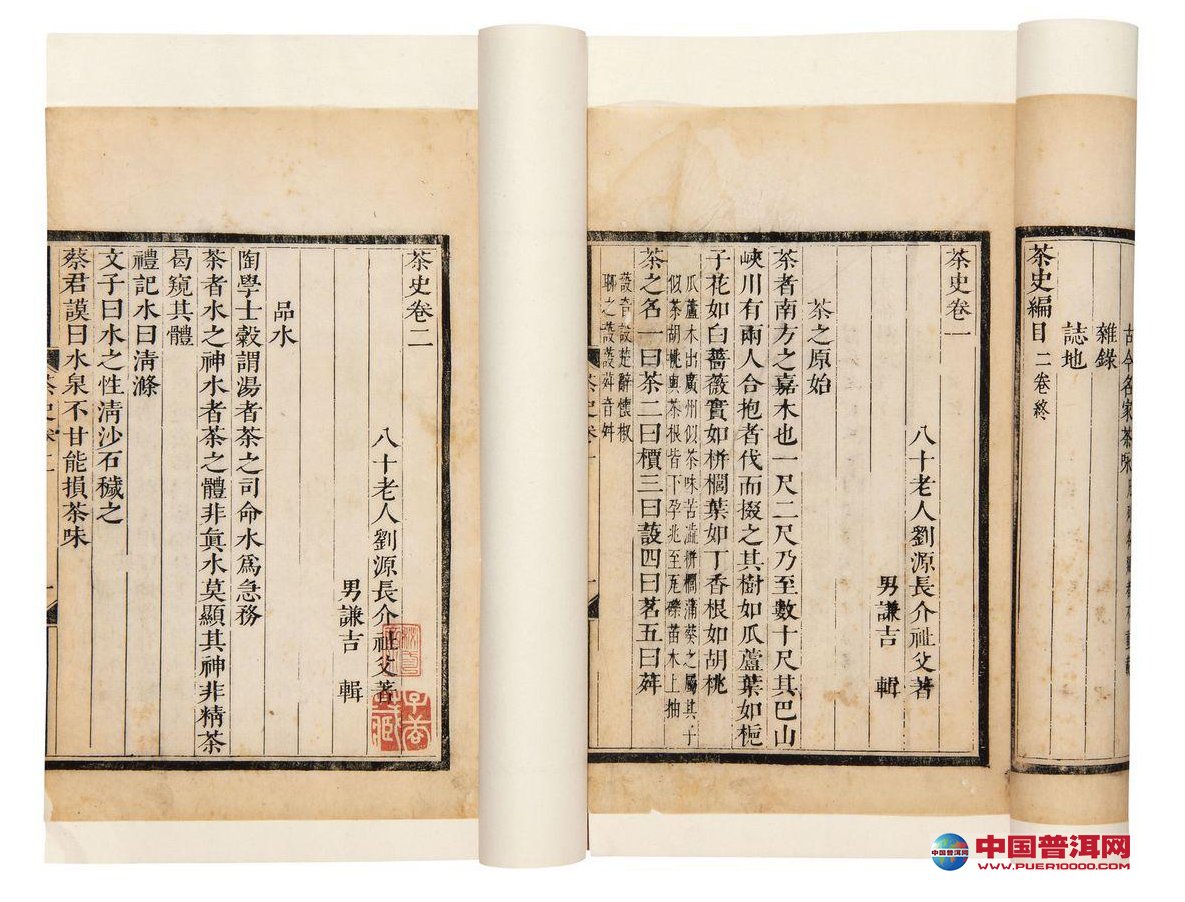 古今名家茶咏
雜錄
誌地
茶史編目 二卷終
茶史卷一
八十老人劉源長介祉父著
男謙吉 輯
茶之原始
茶者南方之嘉木也一尺二尺乃至數十尺其巴山
峽川有兩人合抱者伐而掇之其樹如瓜蘆葉如梔
子花如白薔薇實如栟櫚葉如丁香根如胡桃
瓜蘆木出廣州似茶味苦澁栟櫚蒲葵之屬其子
似茶胡桃與茶根皆下孕兆至瓦礫苗木上抽
茶之名一曰茶二曰檟三曰蔎四曰茗五曰荈
蔎音設楚辭懷椒
聊之蔎蔎荈音舛
茶史卷二
八十老人劉源長介祉父著
男謙吉 輯
品水
陶學士穀謂湯者茶之司命水爲急務
茶者水之神水者茶之體非眞水莫顯其神非精茶
曷窺其體
禮記水曰清滌
文子曰水之性清沙石穢之
蔡君謨曰水泉不甘能損茶味
茶史卷二
中国普洱网
WWW.PUER10000.COM